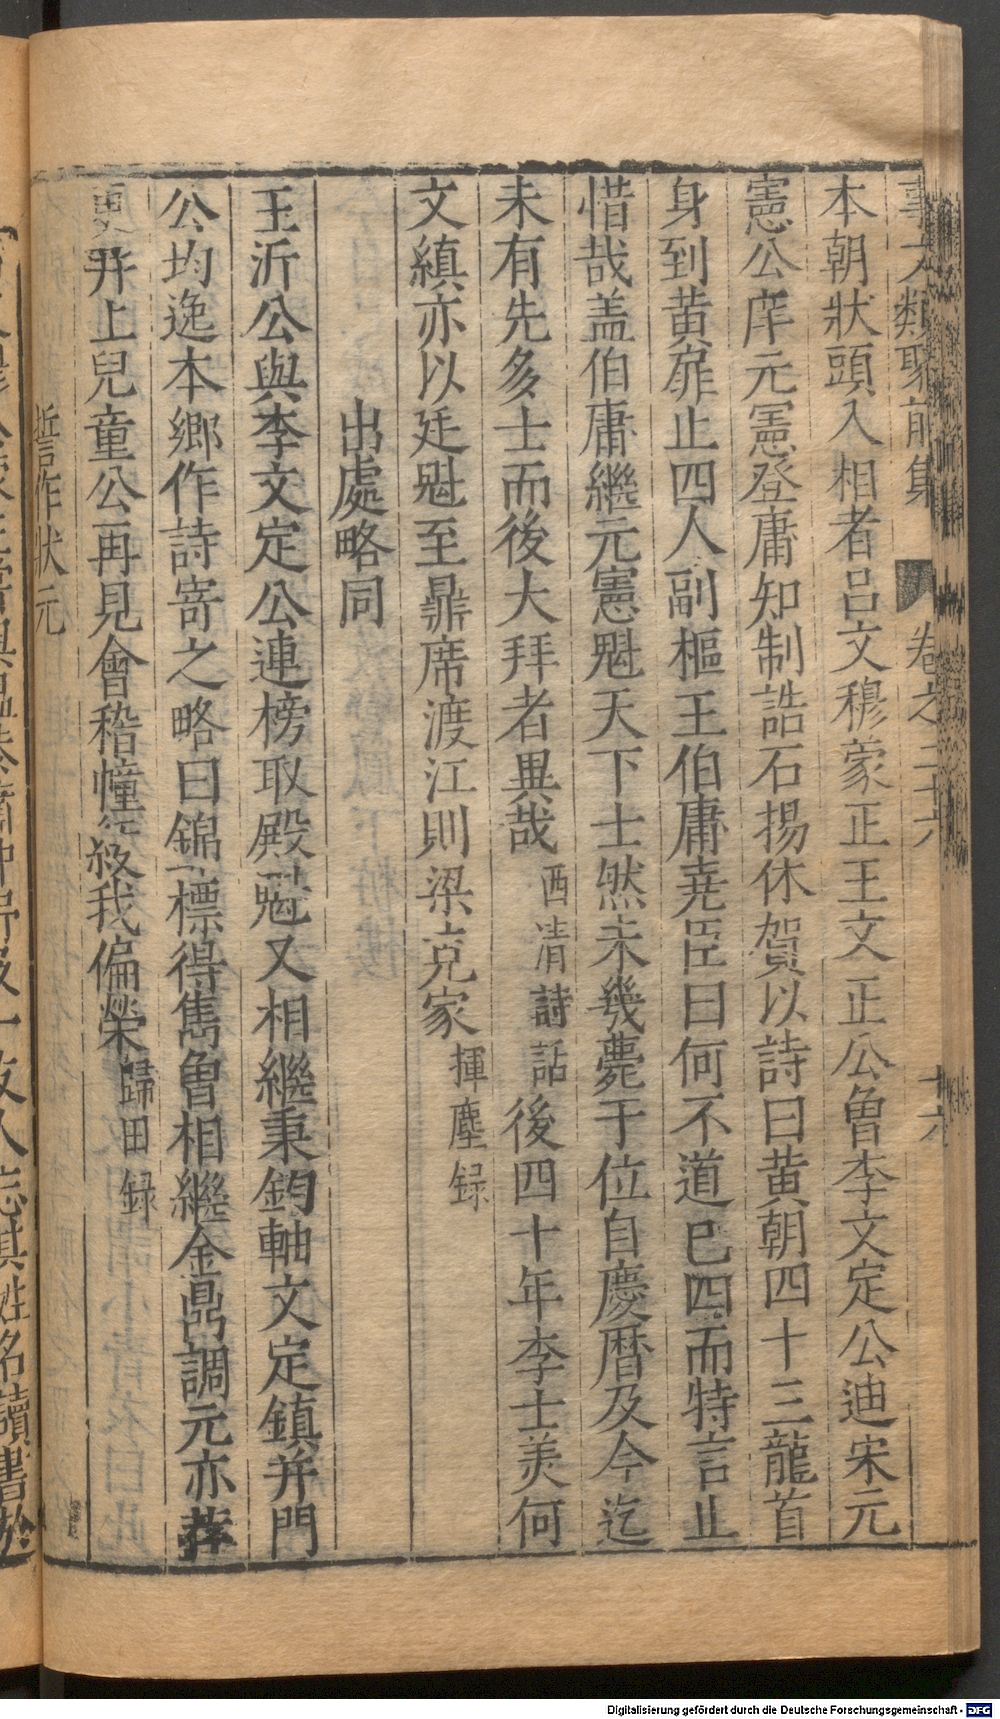 事文類聚前集 卷之二十六 十六
本朝狀頭入相者呂文穆蒙正王文正公曾李文定公迪宋元
憲公庠元憲登庸知制誥石揚休賀以詩曰黃朝四十三龍首
身到黃扉止四人副樞王伯庸堯臣曰何不道已四而特言止
惜哉盖伯庸繼元憲魁天下士然未幾薨于位自慶曆及今迄
未有先多士而後大拜者異哉 西清詩話 後四十年李士美何
文縝亦以廷魁至鼎席渡江則梁克家 揮塵録
出處略同
王沂公與李文定公連榜取殿魁又相繼秉鈞軸文定鎮并門
公均逸本鄉作詩寄之略曰錦標得雋曾相繼金鼎調元亦荐
更并上兒童公再見會稽幢紱我偏榮 歸田録
誓作狀元
Digitalisierung gefördert durch die Deutsche Forschungsgemeinschaft - DFG